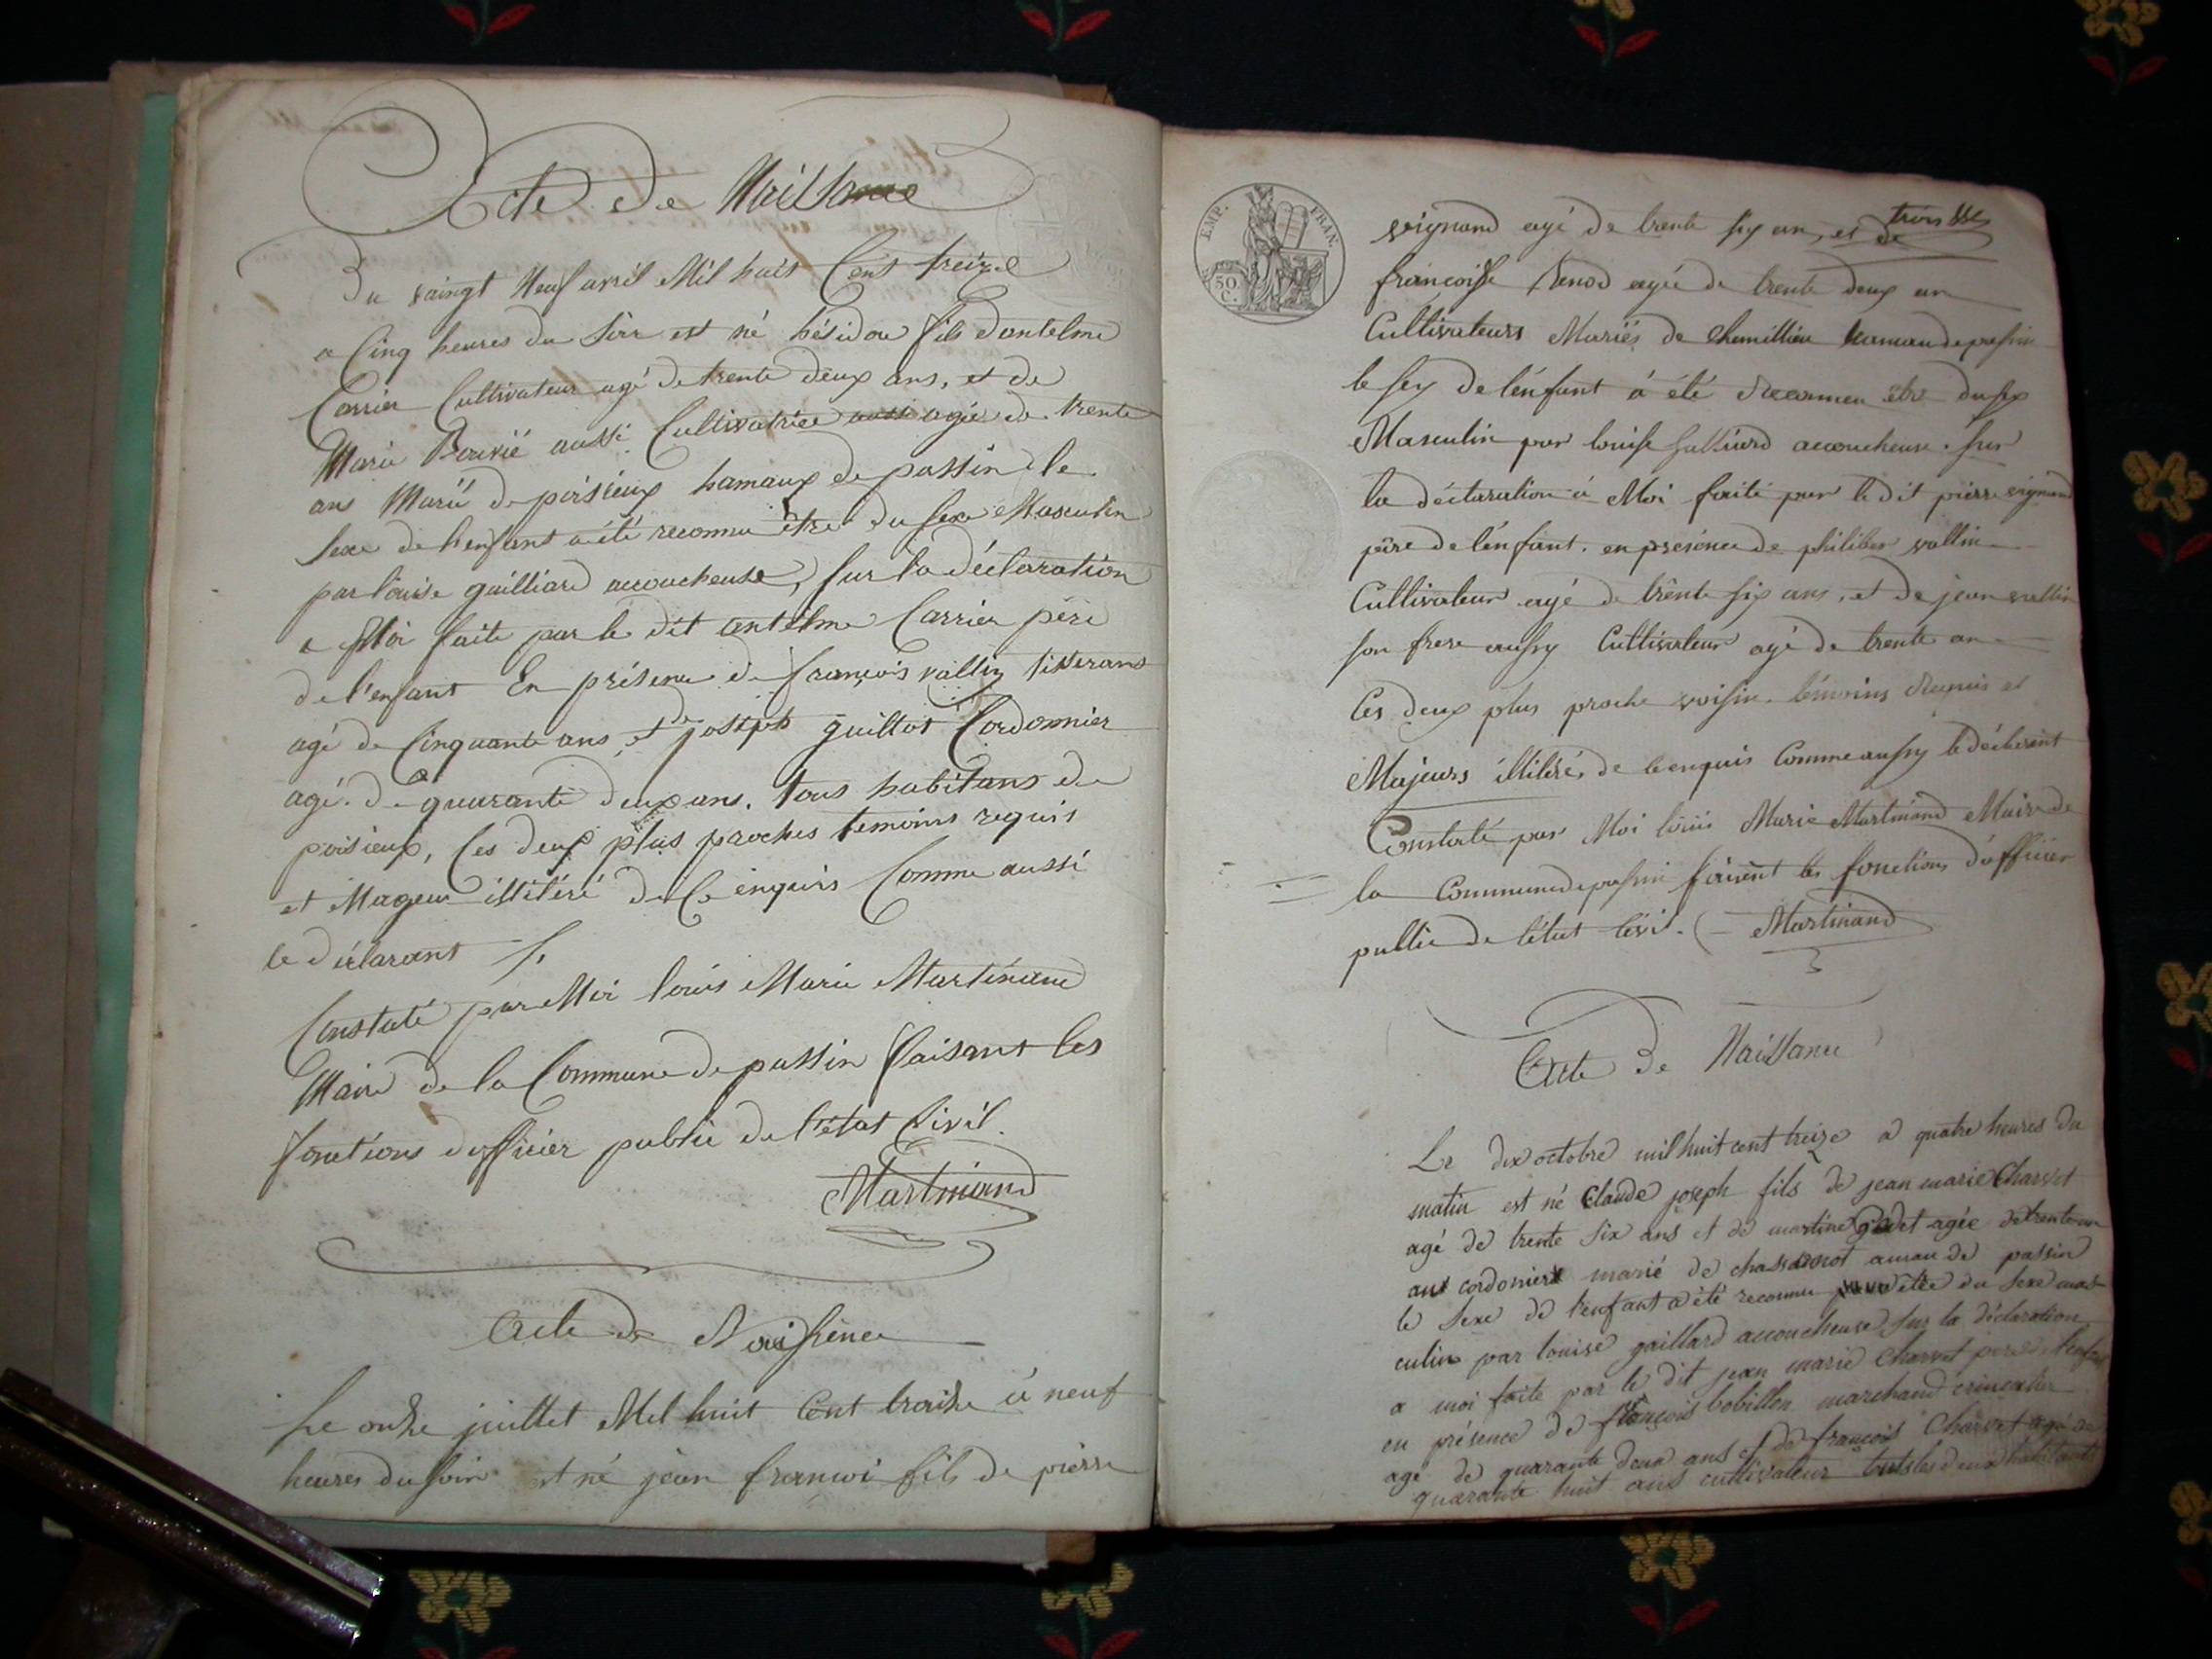 Acte de Naissance
Du vaingt Neuf avril Mil huit Cent treize
a Cinq heures du soir est né hésidore fils dantelme
Carrier Cultivateur agé de trente deux ans, et de
Marie Bouvié aussi Cultivatrice aussi agée de trente
ans Marié de poisieux hamaux de passin le
sexe de l'enfant a été reconnu être du sexe Masculin
par louise guilliard accoucheuse, sur la déclaration
a Moi faite par le dit antelme Carrier père
de l'enfant En présence de françois vallin tisserans
agé de Cinquante ans, et de joseph guillot Cordonnier
agé de quarante deux ans. tous habitans de
poisieux, les deux plus proches temoins requis
et Mageur illitéré de Ce enquis Comme aussi
le déclarant
Constaté par Moi louis Marie Martinand
Maire de la Commune de passin faisant les
fonctions d officier public de l'état Civil.
Martinand
Acte de
Le onze juillet Mil huit Cent traize à neuf
heures du soir est né jean francoi fils de pierre
EMP. FRAN.
50 C.
seignand agé de trente six an, et de
francoise Renod agée de trente deux an
Cultivateurs Mariés de Chemillieu hamau de passin
le sex de l'énfant à été être du sex
Masculin par louise accoucheuse. sur
la déclaration à Moi faite par le dit pierre seignand
père de l'énfant. en présence de philiber vallin
Cultivateur agé de trente six ans, et de jean vallin
son frere aussy Cultivateur agé de trente an
les deux plus proche voisin. témoins et
Majeurs illitéré, de ce enquis Comme aussy le déclarant
Constaté par Moi louis Marie Martinand Maire de
la Commune de passin faisent les fonctions d'officier
public de l'état Civil. Martinand
Acte de Naissance
Le dix octobre mil huit cent treize a quatre heures du
matin est né Claude joseph fils de jean marie Charvet
agé de trente six ans et de martine agée de trente
ans cordonier marié de amau de passin
le sexe de l'enfant a été reconnu etre du sexe mas
culin par louise gaillard accoucheuse sur la déclaration
a moi faite par le dit jean marie charvet pere de l'enfant
en présence de françois bobillon marchand
agé de quarante deux ans et de françois Charvet agé de
quarante huit ans cultivateur touts les deux habitants